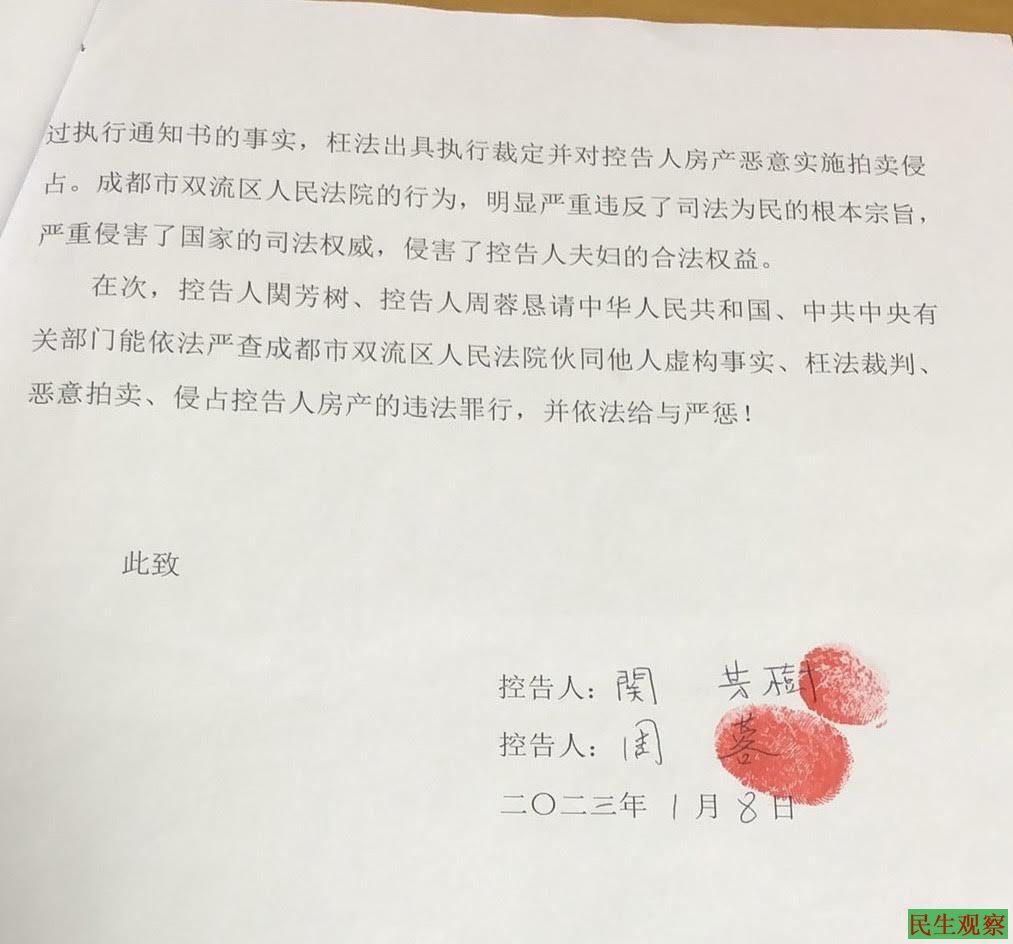 过执行通知书的事实，枉法出具执行裁定并对控告人房产恶意实施拍卖侵
占。成都市双流区人民法院的行为，明显严重违反了司法为民的根本宗旨，
严重侵害了国家的司法权威，侵害了控告人夫妇的合法权益。
在次，控告人関芳树、控告人周蓉恳请中华人民共和国、中共中央有
关部门能依法严查成都市双流区人民法院伙同他人虚构事实、枉法裁判、
恶意拍卖、侵占控告人房产的违法罪行，并依法给与严惩！
此致
控告人：関 芳樹
控告人：周 蓉
二〇二三年 1 月 8 日
民生观察